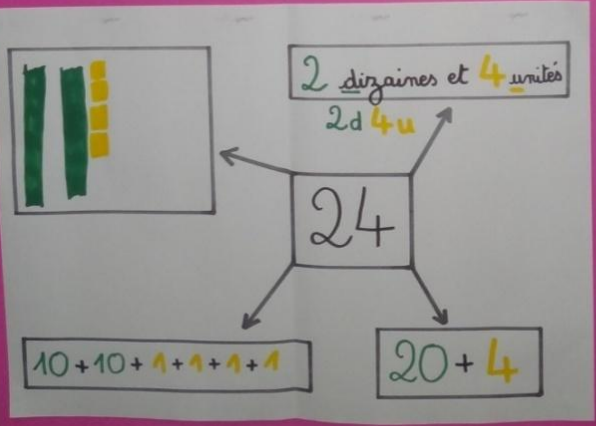 2 dizaines et 4 unités
2d 4u
24
10+10+1+1+1+1
20+4